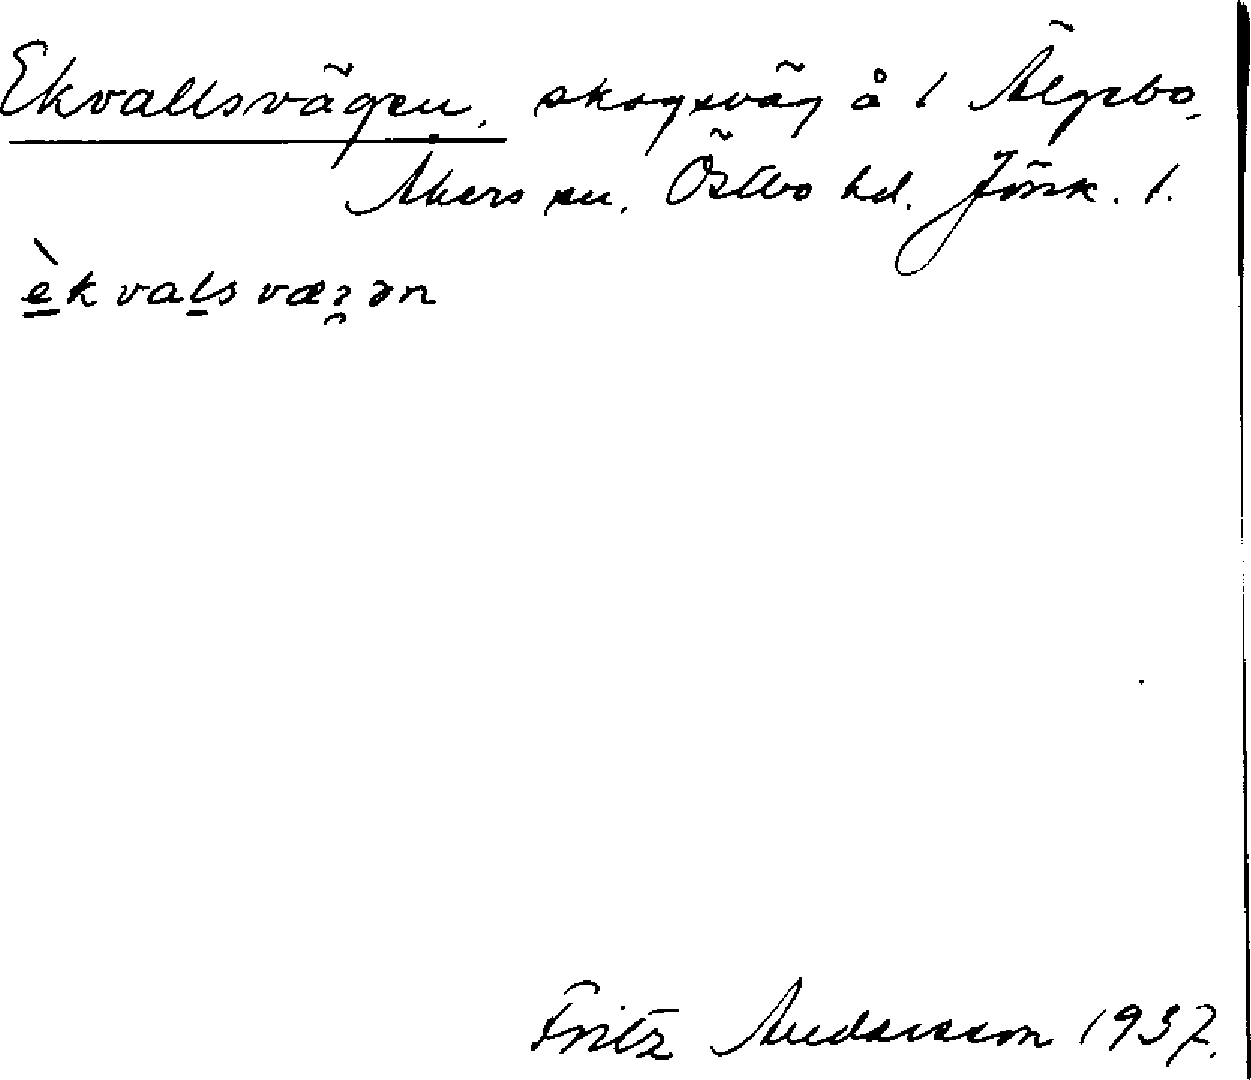 Ekvallsvägen, skogsväg å 1 Älgebo,
Åkers sn. Östbo hd. Jönk. l.
èkvalsvæʒən
Fritz Andersson 1937.